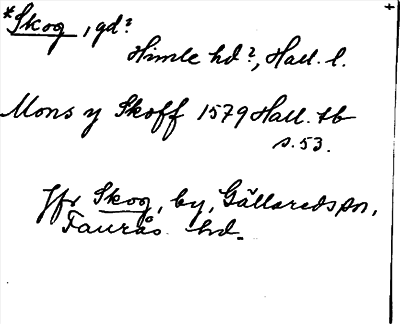 *Skog, gd?
Himle hd?, Hall. l.
Mons y Skoff 1579 Hall. tb
s. 53.
Jfr Skog, by, Gällareds sn,
Faurås hd.